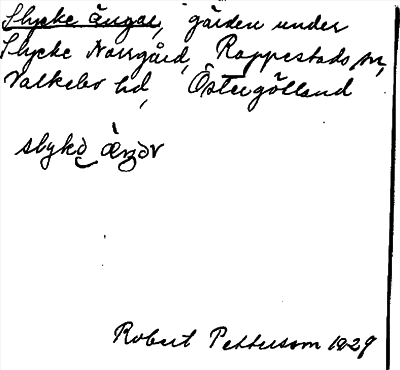 Slycke ängar, gården under
Slycke Norrgård, Rappestads sn,
Valkebo hd, Östergötland
slykə æŋɑr
Robert Pettersson 1929